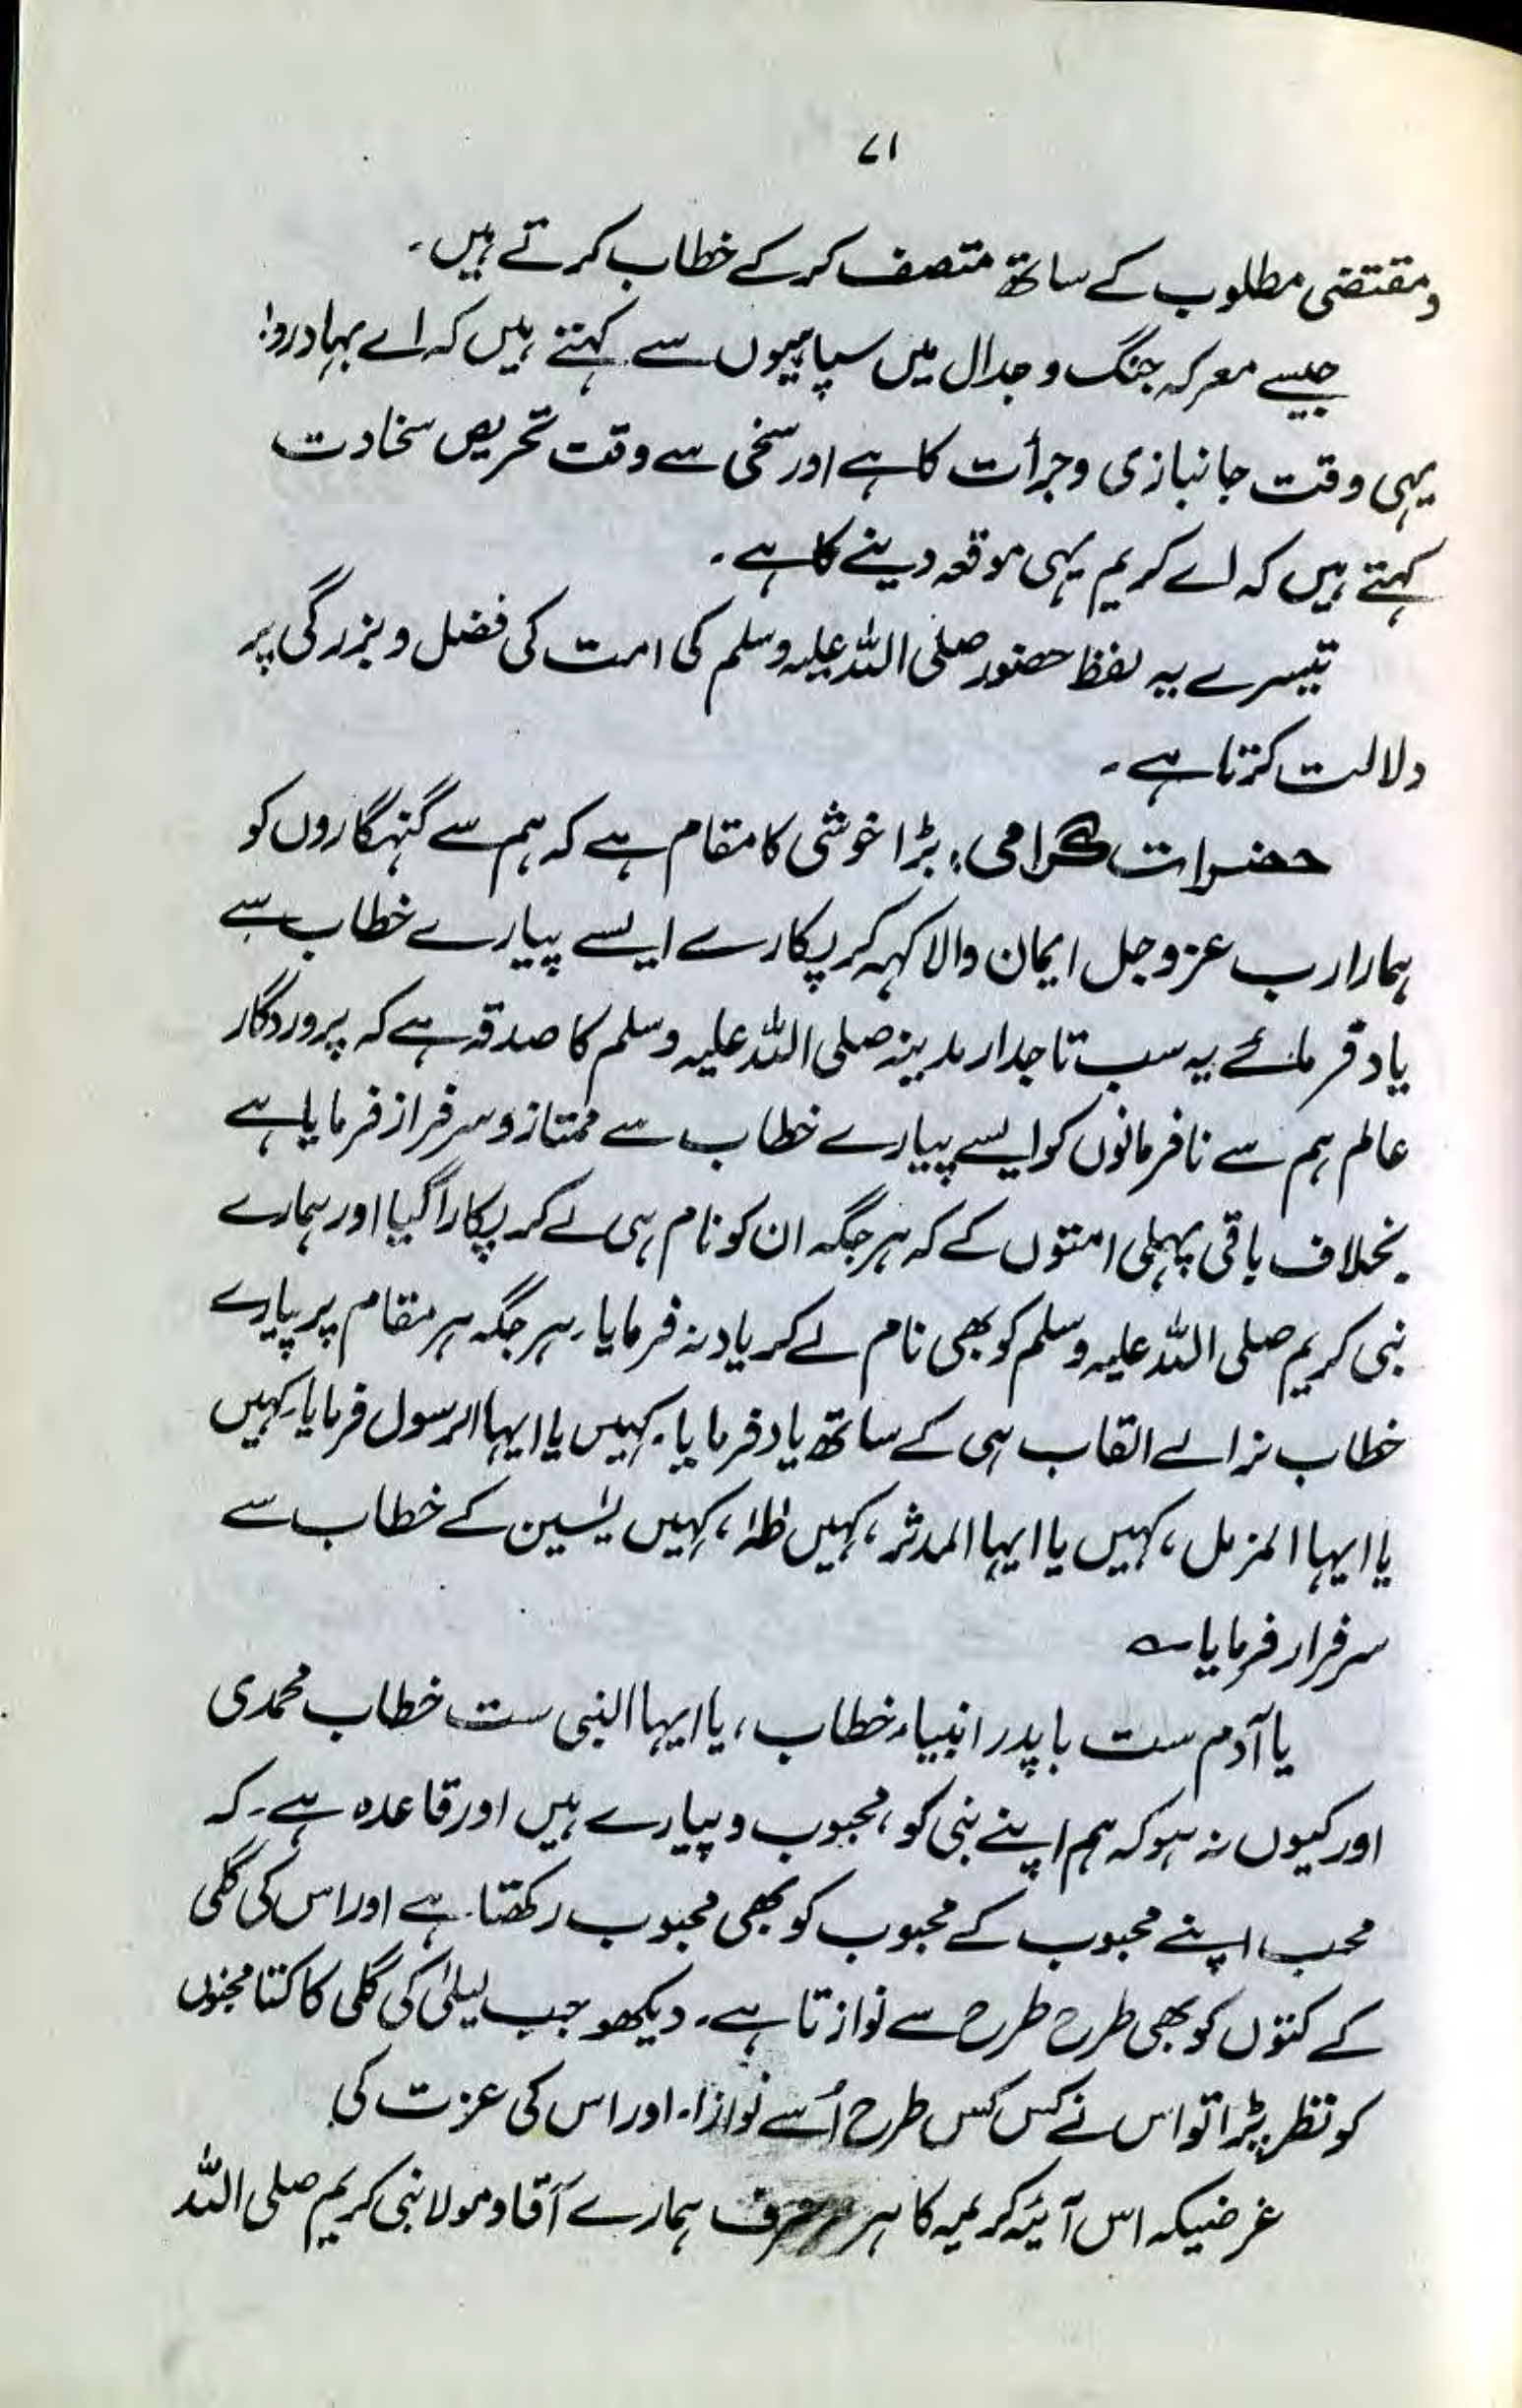 ۷۱
و مقتضی مطلوب کے ساتھ متصف کر کے خطاب کرتے ہیں۔
جیسے معرکہ جنگ و جدال میں سپاہیوں سے کہتے ہیں کہ اے بہادرو!
یہی وقت جانبازی و جرأت کا ہے اور سخی سے وقت تحریص سخاوت
کہتے ہیں کہ اے کریم یہی موقعہ دینے کا ہے۔
تیسرے یہ لفظ حضور صلی اللہ علیہ وسلم کی امت کی فضل و بزرگی پر
دلالت کرتا ہے۔
حضرات گرامی: بڑا خوشی کا مقام ہے کہ ہم سے گنہگاروں کو
ہمارا رب عزوجل ایمان والا کہہ کر پکارے ایسے پیارے خطاب سے
یاد فرمائے یہ سب تاجدار مدینہ صلی اللہ علیہ وسلم کا صدقہ ہے کہ پروردگار
عالم ہم سے نافرمانوں کو ایسے پیارے خطاب سے ممتاز و سرفراز فرمایا ہے
بخلاف باقی پہلی امتوں کے کہ ہر جگہ ان کو نام ہی لے کر پکارا گیا اور ہمارے
نبی کریم صلی اللہ علیہ وسلم کو بھی نام لے کر یاد نہ فرمایا۔ ہر جگہ ہر مقام پر پیارے
خطاب نرالے القاب ہی کے ساتھ یاد فرمایا۔ کہیں یا ایہا الرسول فرمایا۔ کہیں
یا ایہا المزمل، کہیں یا ایہا المدثر، کہیں طٰہٰ، کہیں یٰسین کے خطاب سے
سرفراز فرمایا ؎
یا آدم ست با پدر انبیاء خطاب، یا ایہا النبی ست خطاب محمدی
اور کیوں نہ ہو کہ ہم اپنے نبی کو، محبوب و پیارے ہیں اور قاعدہ ہے۔ کہ
محب اپنے محبوب کے محبوب کو بھی محبوب رکھتا ہے اور اس کی گلی
کے کتوں کو بھی طرح طرح سے نوازتا ہے۔ دیکھو جب لیلیٰ کی گلی کا کتا مجنوں
کو نظر پڑا تو اس نے کس کس طرح اُسے نوازا۔ اور اس کی عزت کی
غرضیکہ اس آیۂ کریمہ کا ہر حرف ہمارے آقا و مولا نبی کریم صلی اللہ